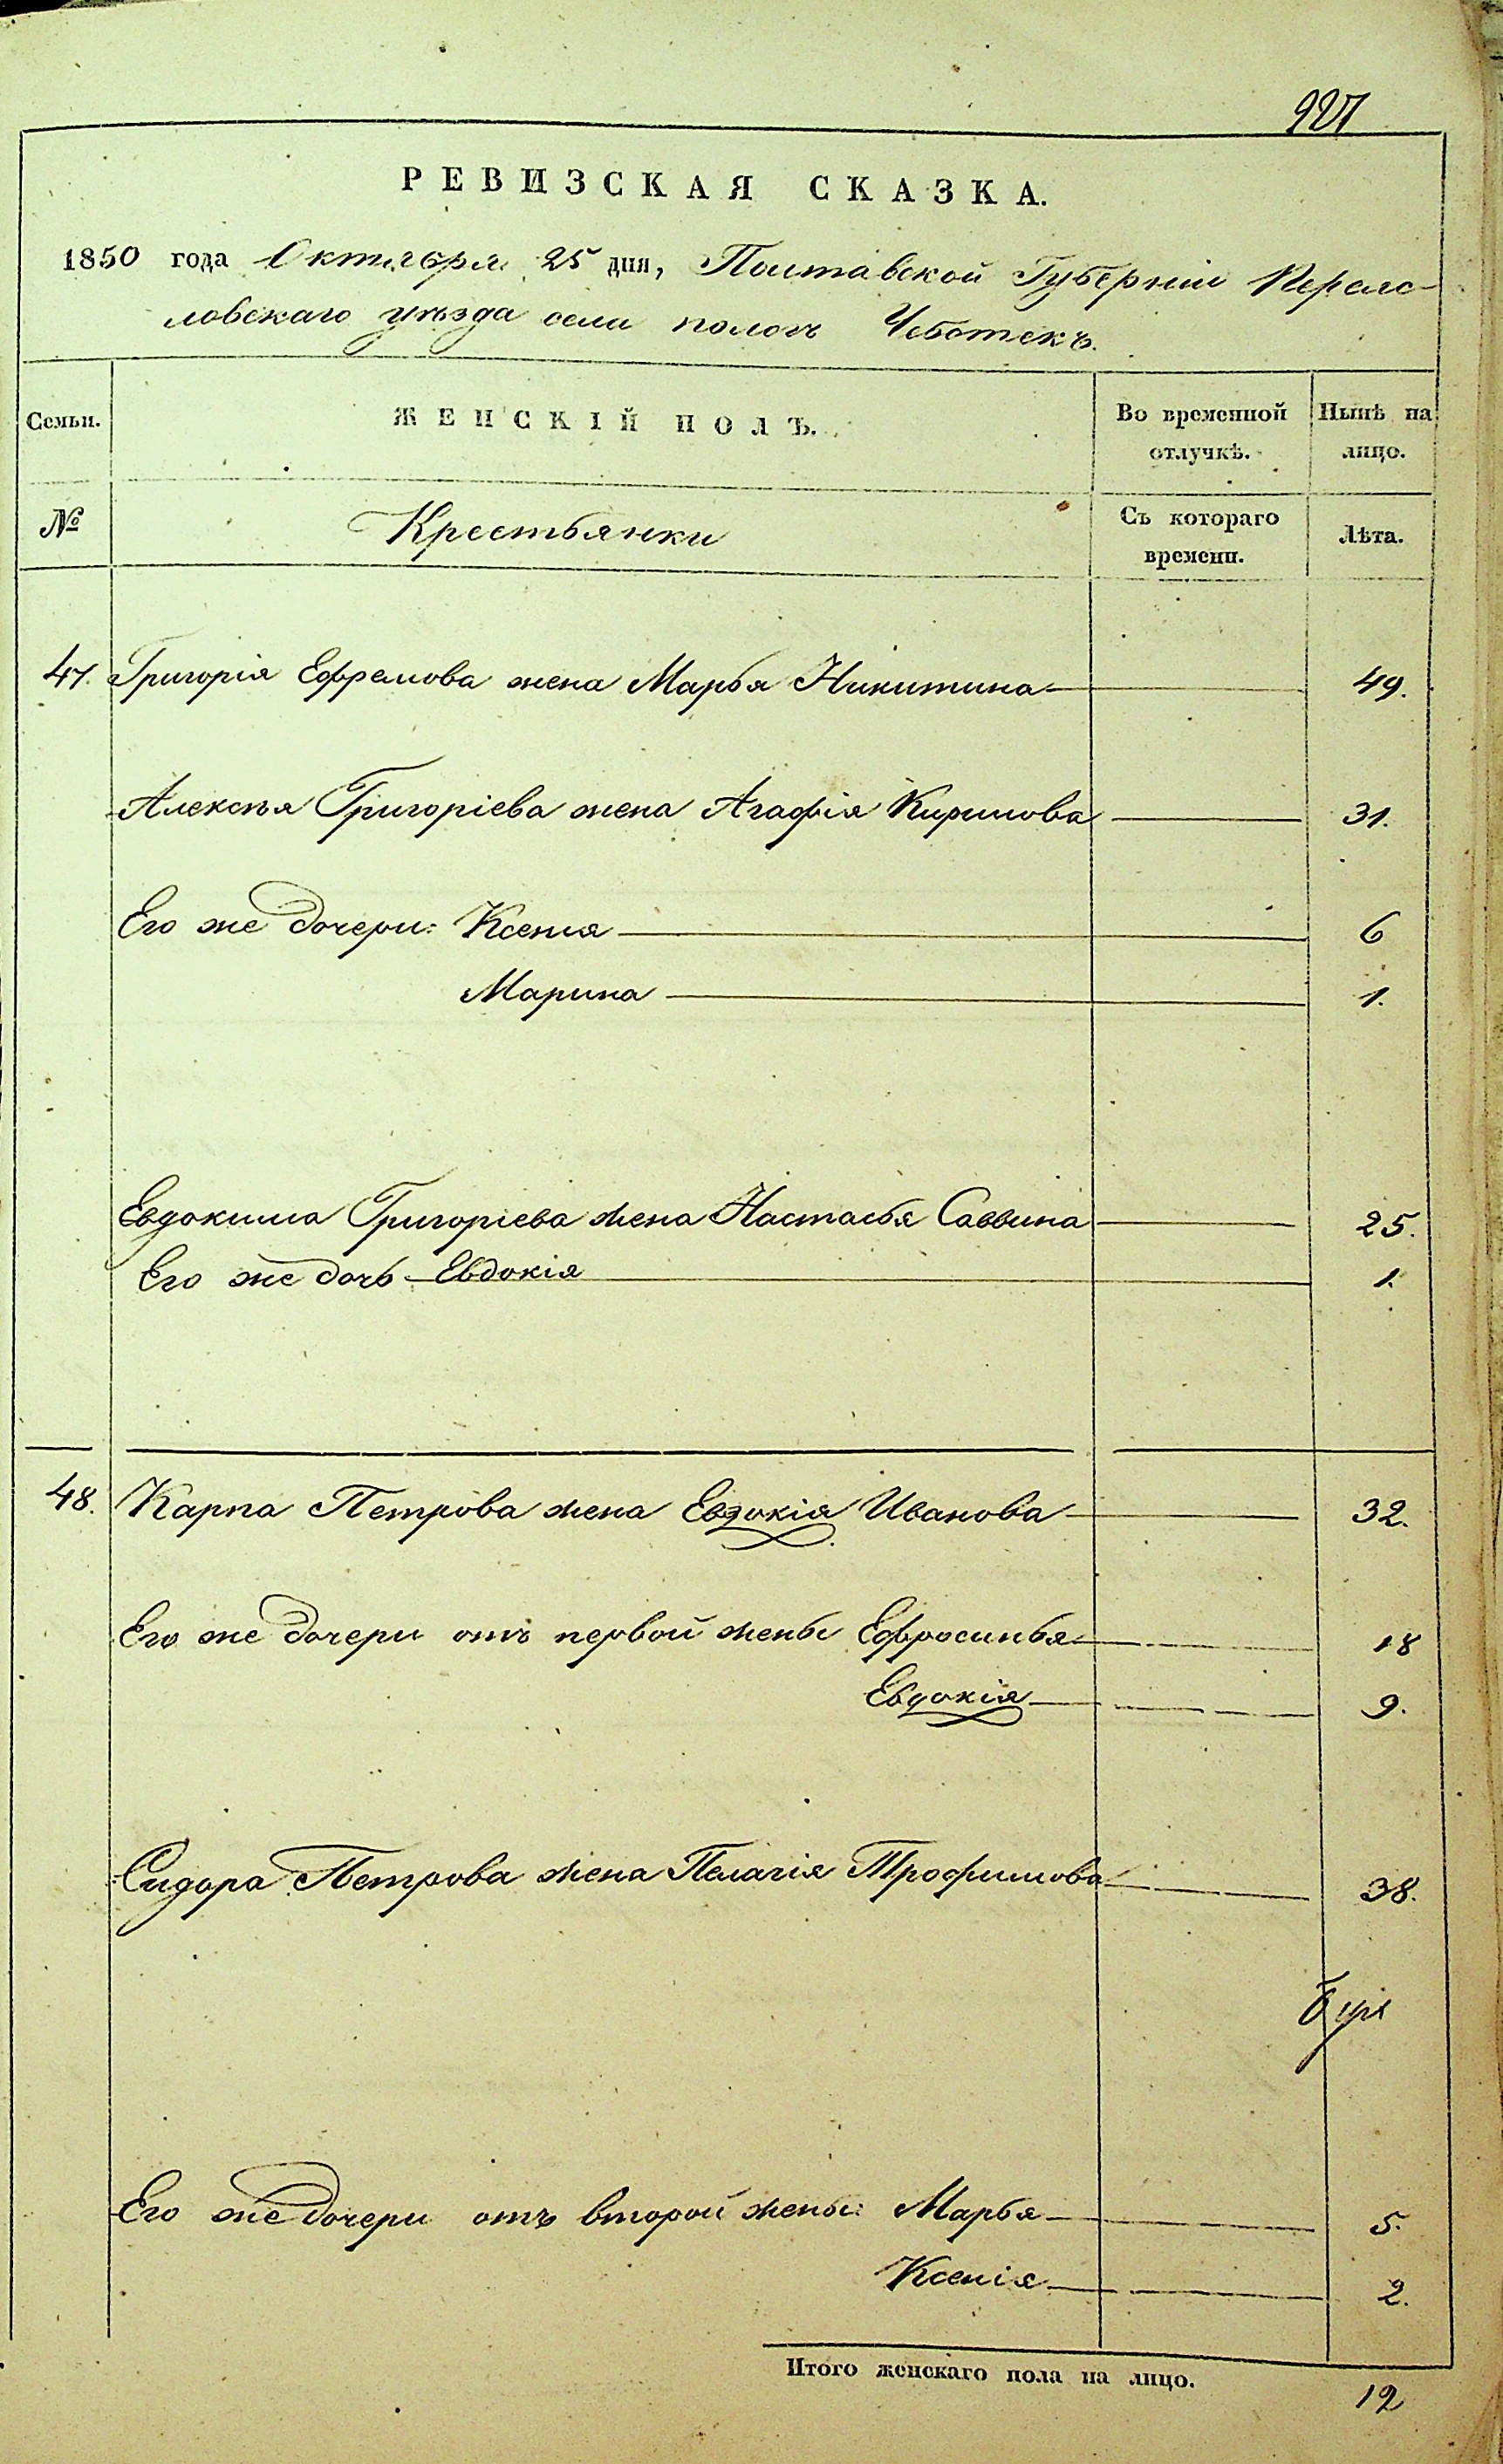 РЕВИЗСКАЯ СКАЗКА.
1850 года Октября 25 дня, Полтавской Губерніи Переяс-
ловскаго уѣзда села Чеботекъ.
Семьи. ЖЕНСКІЙ ПОЛЪ. Во временной отлучкѣ. Нынѣ на лицо.
№ Крестьянки Съ котораго времени. Лѣта.
47. Григорія Ефремова жена Марья Никитина 49.
Алексѣя Григоріева жена Агафія Кирилова 31.
Его же дочери: Ксенія 6
Марина 1.
Евдокима Григоріева жена Настасья Саввина 25.
Его же дочь Евдокія 1.
48. Карпа Петрова жена Евдокія Иванова 32.
Его же дочери отъ первой жены Ефросинья 18
Евдокія 9.
Сидора Петрова жена Пелагія Трофимова 38.
Его же дочери отъ второй жены: Марья 5.
Ксенія 2.
Итого женскаго пола на лицо. 12